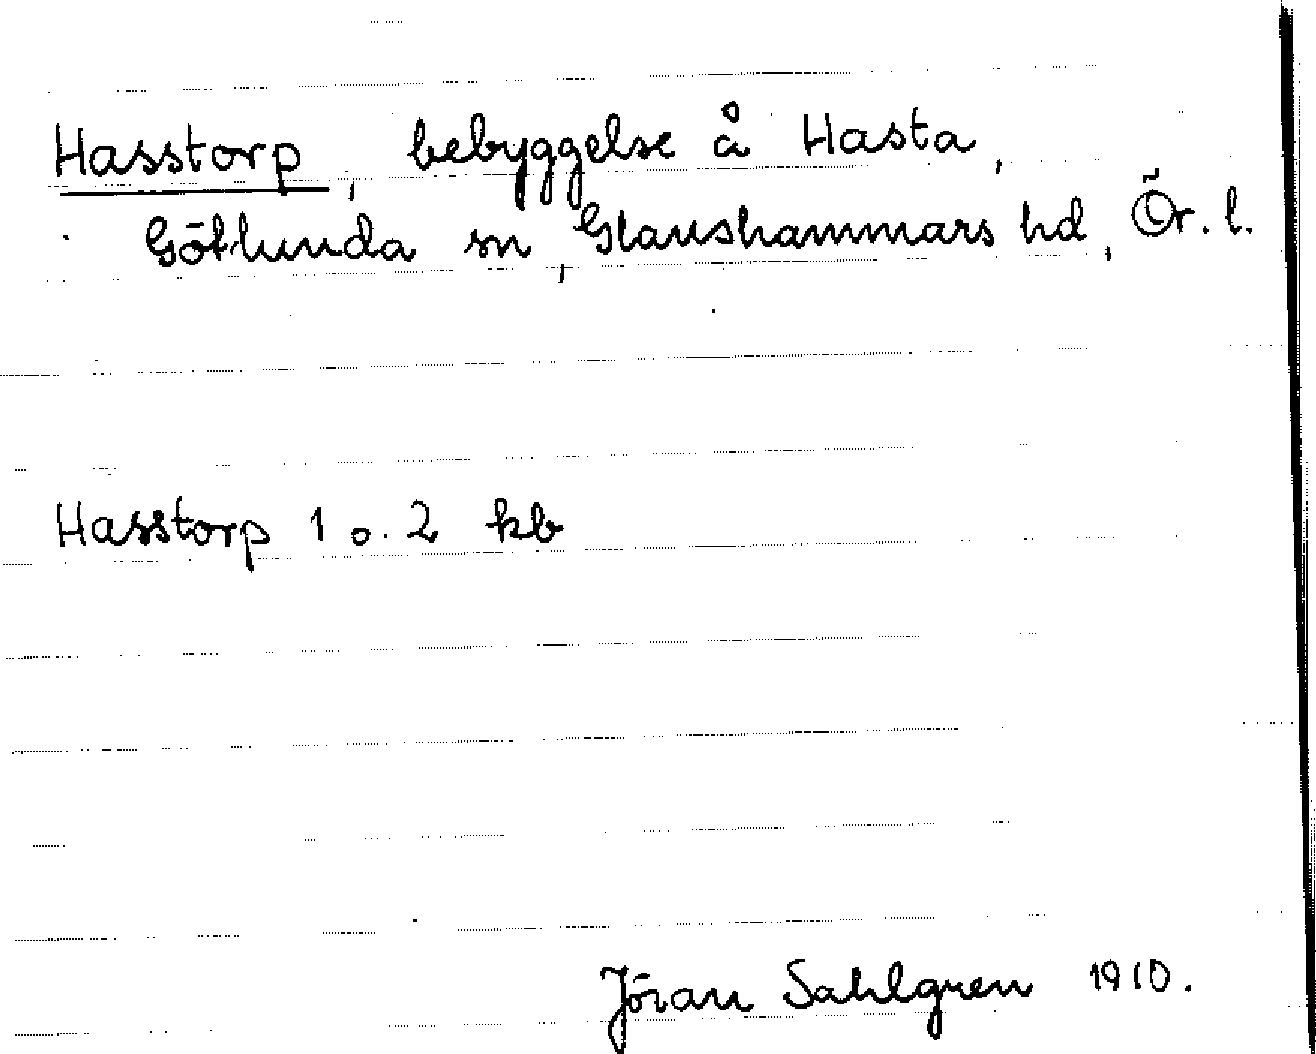 Hasstorp, bebyggelse å Hasta,
Götlunda sn, Glanshammars hd, Ör. l.
Hasstorp 1 o. 2 kb
Jöran Sahlgren 1910.